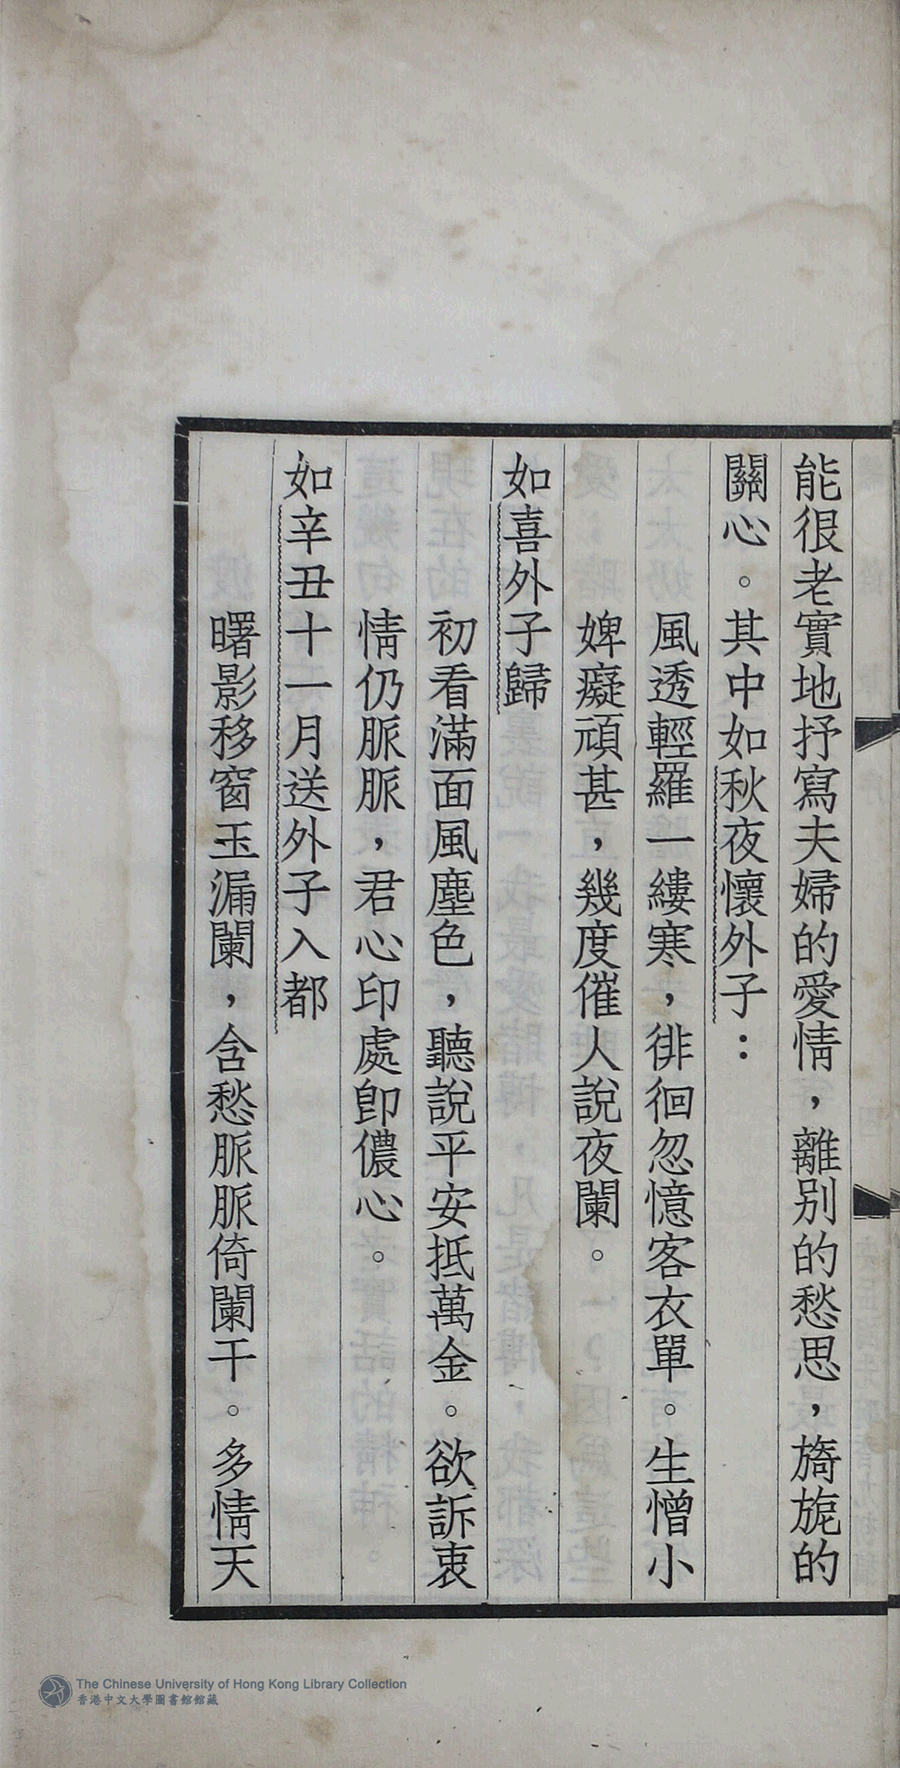 能很老實地抒寫夫婦的愛情，離別的愁思，旖旎的
關心。其中如秋夜懷外子：
風透輕羅一縷寒，徘徊忽憶客衣單。生憎小
婢癡頑甚，幾度催人說夜闌。
如喜外子歸
初看滿面風塵色，聽說平安抵萬金。欲訴衷
情仍脈脈，君心印處卽儂心。
如辛丑十一月送外子入都
曙影移窗玉漏闌，含愁脈脈倚闌干。多情天
The Chinese University of Hong Kong Library Collection
香港中文大學圖書館館藏